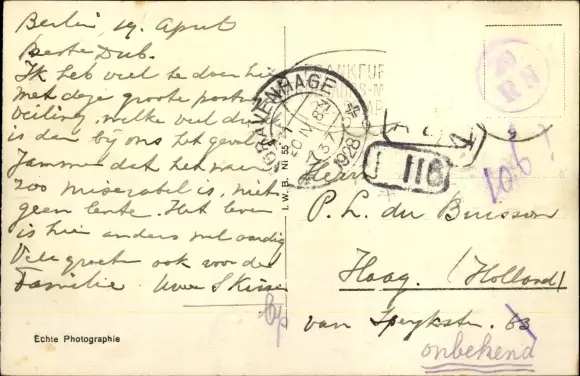 Berlin, 19. April
Beste Dub.
Ik heb veel te doen hier
met deze groote post
veiling, welke veel druk
is dan bij ons het geval
Jammer dat het weer
zoo miserabel is, niets
geen lente. Het leven
is hier anders wel aardig
Vele groeten ook voor de
Familie. Uwe
Echte Photographie
I.W.B. Nr 55
'S GRAVENHAGE
20 IV 8
1928
FRANKFUR
116
106
Herrn
P. L. du Buisson
Haag. (Holland)
van Speykstr. 63
onbekend